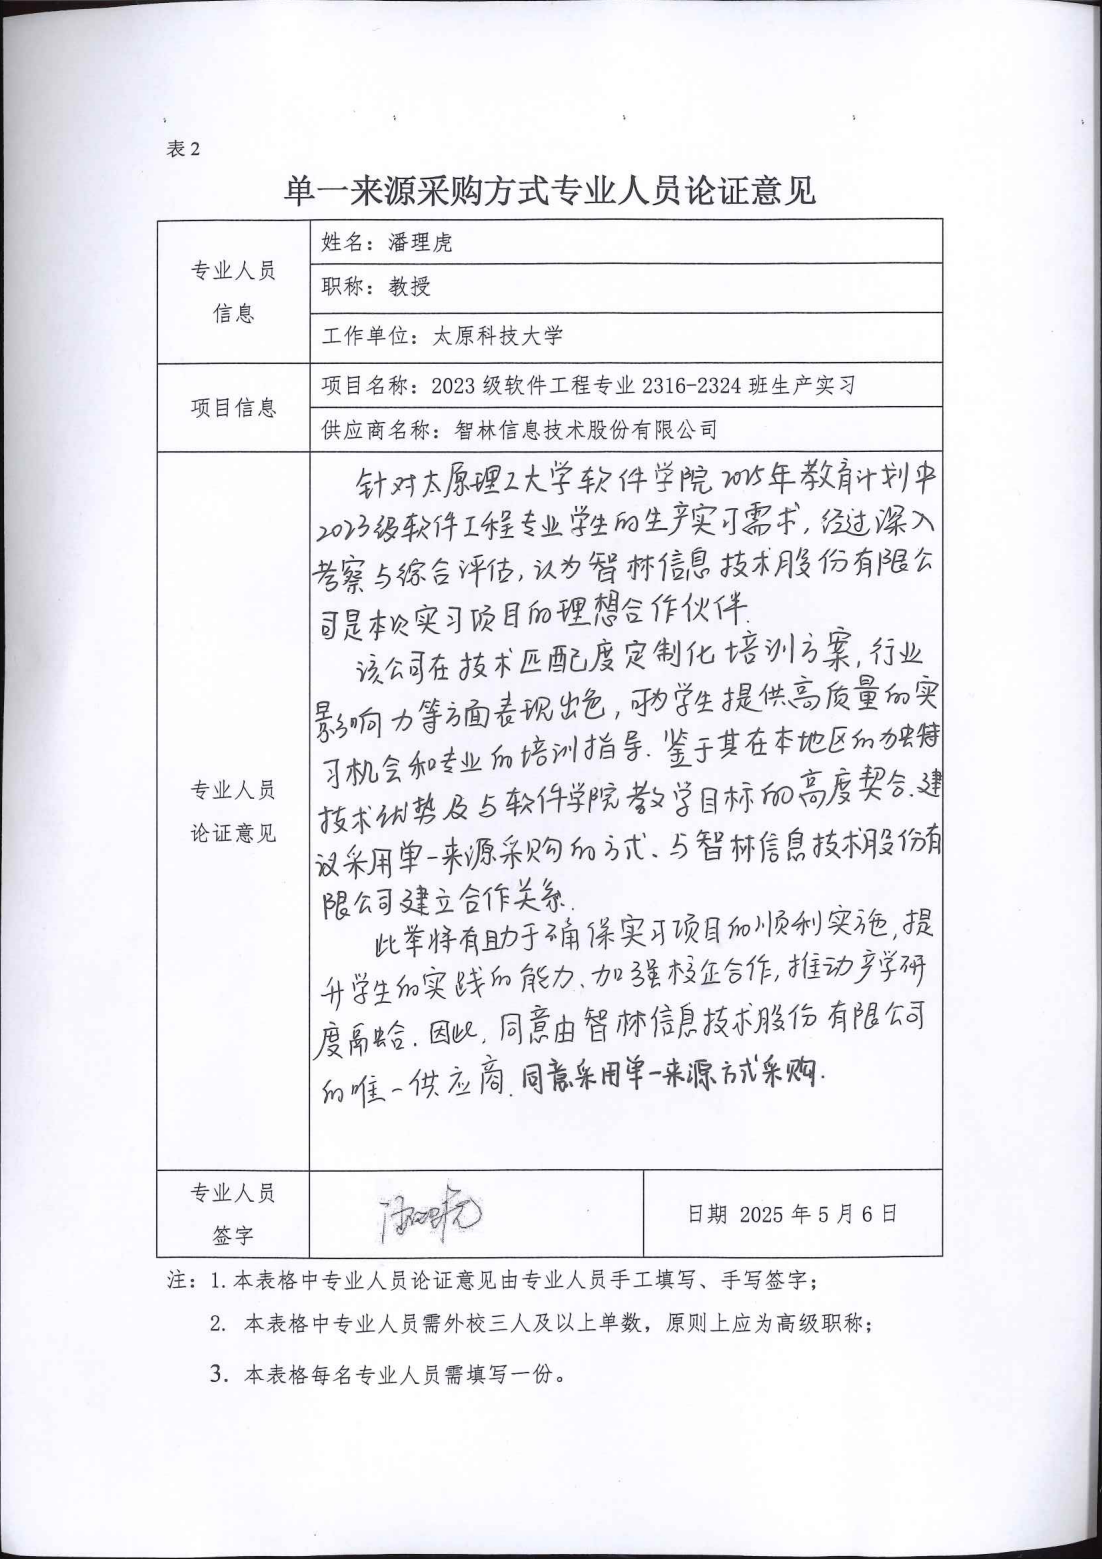 表2
单一来源采购方式专业人员论证意见
专业人员
信息
姓名：潘理虎
职称：教授
工作单位：太原科技大学
项目信息
项目名称：2023级软件工程专业2316-2324班生产实习
供应商名称：智林信息技术股份有限公司
专业人员
论证意见
针对太原理工大学软件学院2025年教育计划中
2023级软件工程专业学生的生产实习需求，经过深入
考察与综合评估，认为智林信息技术股份有限公
司是本次实习项目的理想合作伙伴.
该公司在技术匹配度定制化培训方案，行业
影响力等方面表现出色，可为学生提供高质量的实
习机会和专业的培训指导.鉴于其在本地区的独特
技术优势及与软件学院教学目标的高度契合.建
议采用单一来源采购的方式、与智林信息技术股份有
限公司建立合作关系.
此举将有助于确保实习项目的顺利实施,提
升学生的实践的能力、加强校企合作,推动产学研
度融合.因此,同意由智林信息技术股份有限公司
的唯一供应商.同意采用单一来源方式采购.
专业人员
签字
潘理虎
日期 2025年5月6日
注：1.本表格中专业人员论证意见由专业人员手工填写、手写签字；
2. 本表格中专业人员需外校三人及以上单数，原则上应为高级职称；
3. 本表格每名专业人员需填写一份。